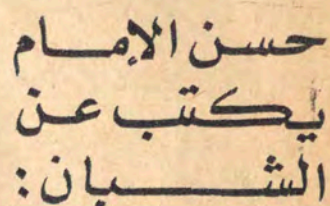 حسن الإمام
يكتب عن
الشبان: